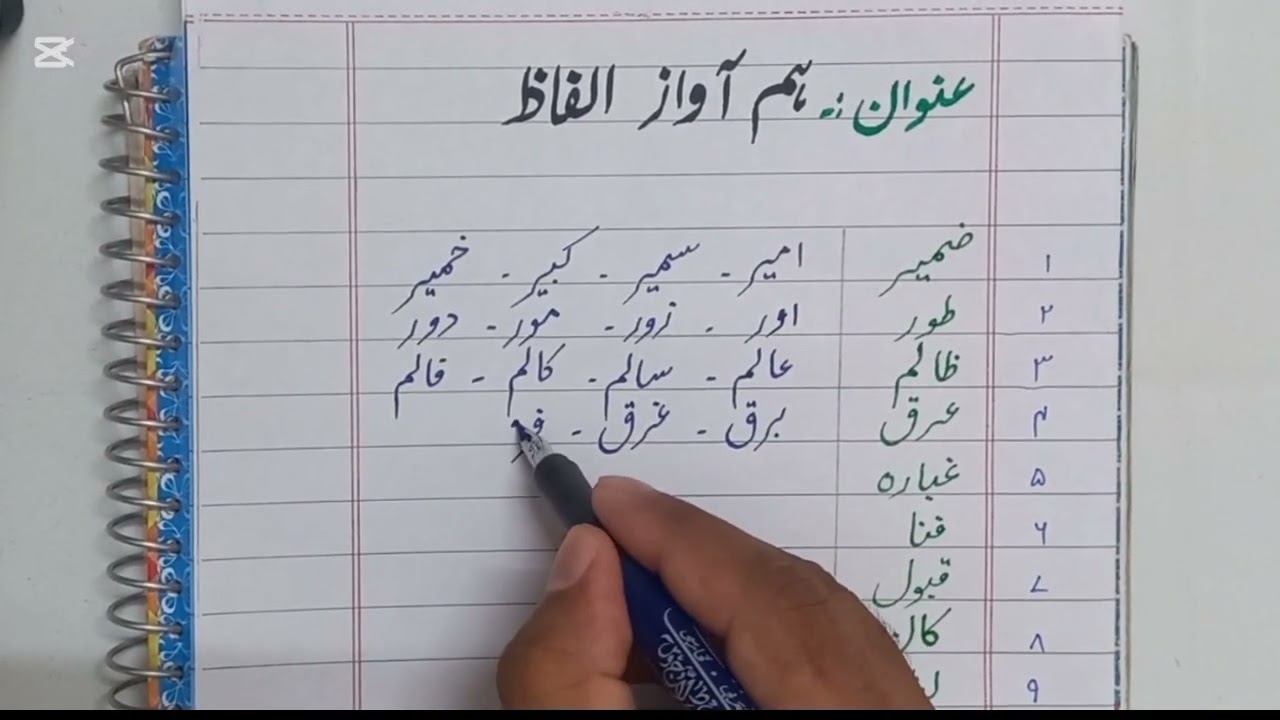 عنوان :۔ ہم آواز الفاظ
۱ ضمیر امیر ۔ سمیر ۔ کبیر ۔ خمیر
۲ طور اور ۔ زور ۔ مور ۔ دور
۳ ظالم عالم ۔ سالم ۔ کالم ۔ قالم
۴ عرق برق ۔ غرق ۔
۵ غبارہ
۶ فنا
۷ قبول
۸ کان
۹